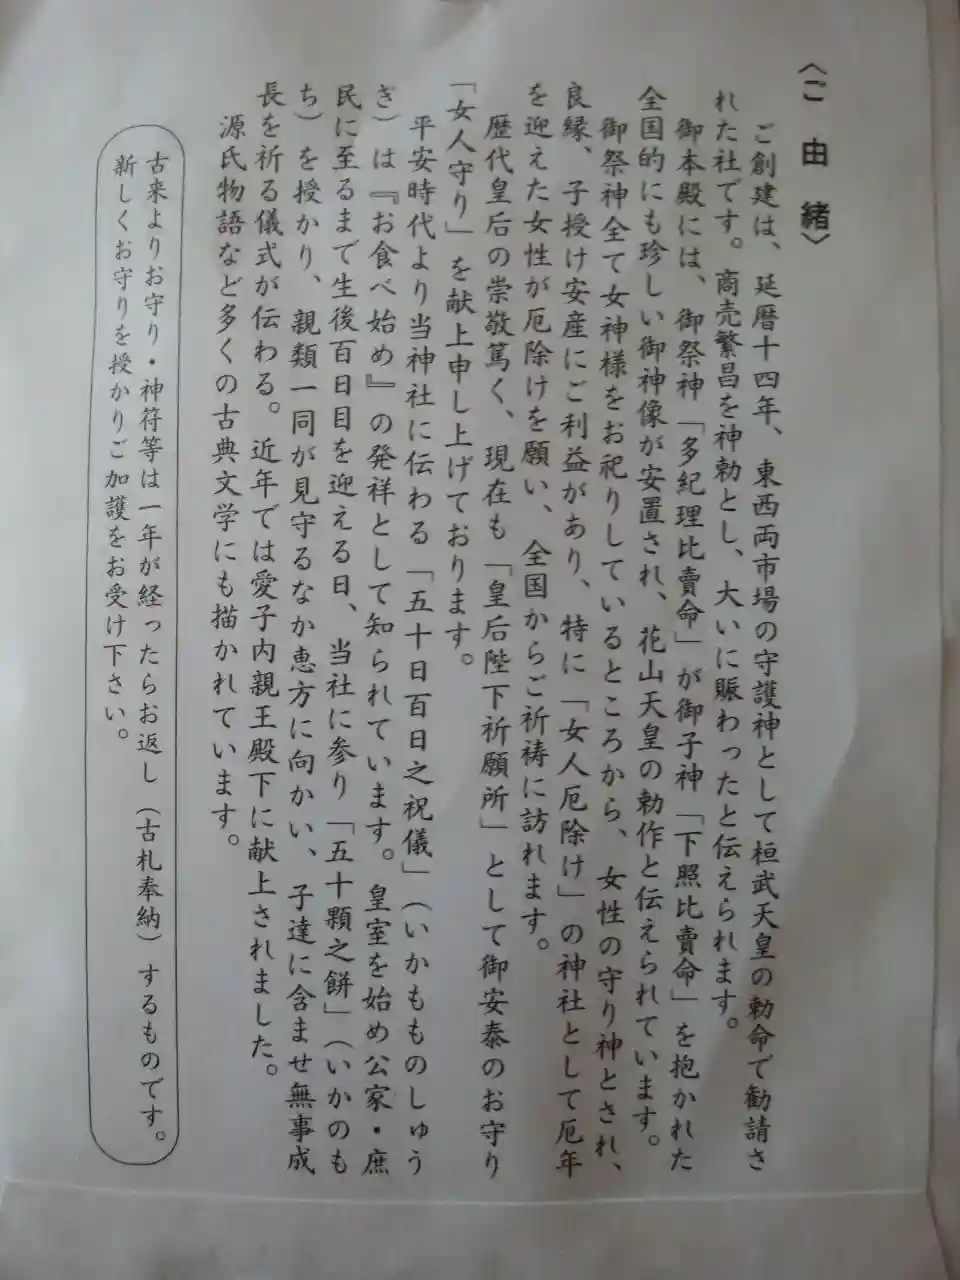 〈ご由緒〉
ご創建は、延暦十四年、東西両市場の守護神として桓武天皇の勅命で勧請さ
れた社です。商売繁昌を神勅とし、大いに賑わったと伝えられます。
御本殿には、御祭神「多紀理比賣命」が御子神「下照比賣命」を抱かれた
全国的にも珍しい御神像が安置され、花山天皇の勅作と伝えられています。
御祭神全て女神様をお祀りしているところから、女性の守り神とされ、
良縁、子授け安産にご利益があり、特に「女人厄除け」の神社として厄年
を迎えた女性が厄除けを願い、全国からご祈祷に訪れます。
歴代皇后の崇敬篤く、現在も「皇后陛下祈願所」として御安泰のお守り
「女人守り」を献上申し上げております。
平安時代より当神社に伝わる「五十日百日之祝儀」（いかももかのしゅう
ぎ）は『お食べ始め』の発祥として知られています。皇室を始め公家・庶
民に至るまで生後百日目を迎える日、当社に参り「五十顆之餅」（いかのも
ち）を授かり、親類一同が見守るなか恵方に向かい、子達に含ませ無事成
長を祈る儀式が伝わる。近年では愛子内親王殿下に献上されました。
源氏物語など多くの古典文学にも描かれています。
古来よりお守り・神符等は一年が経ったらお返し（古札奉納）するものです。
新しくお守りを授かりご加護をお受け下さい。